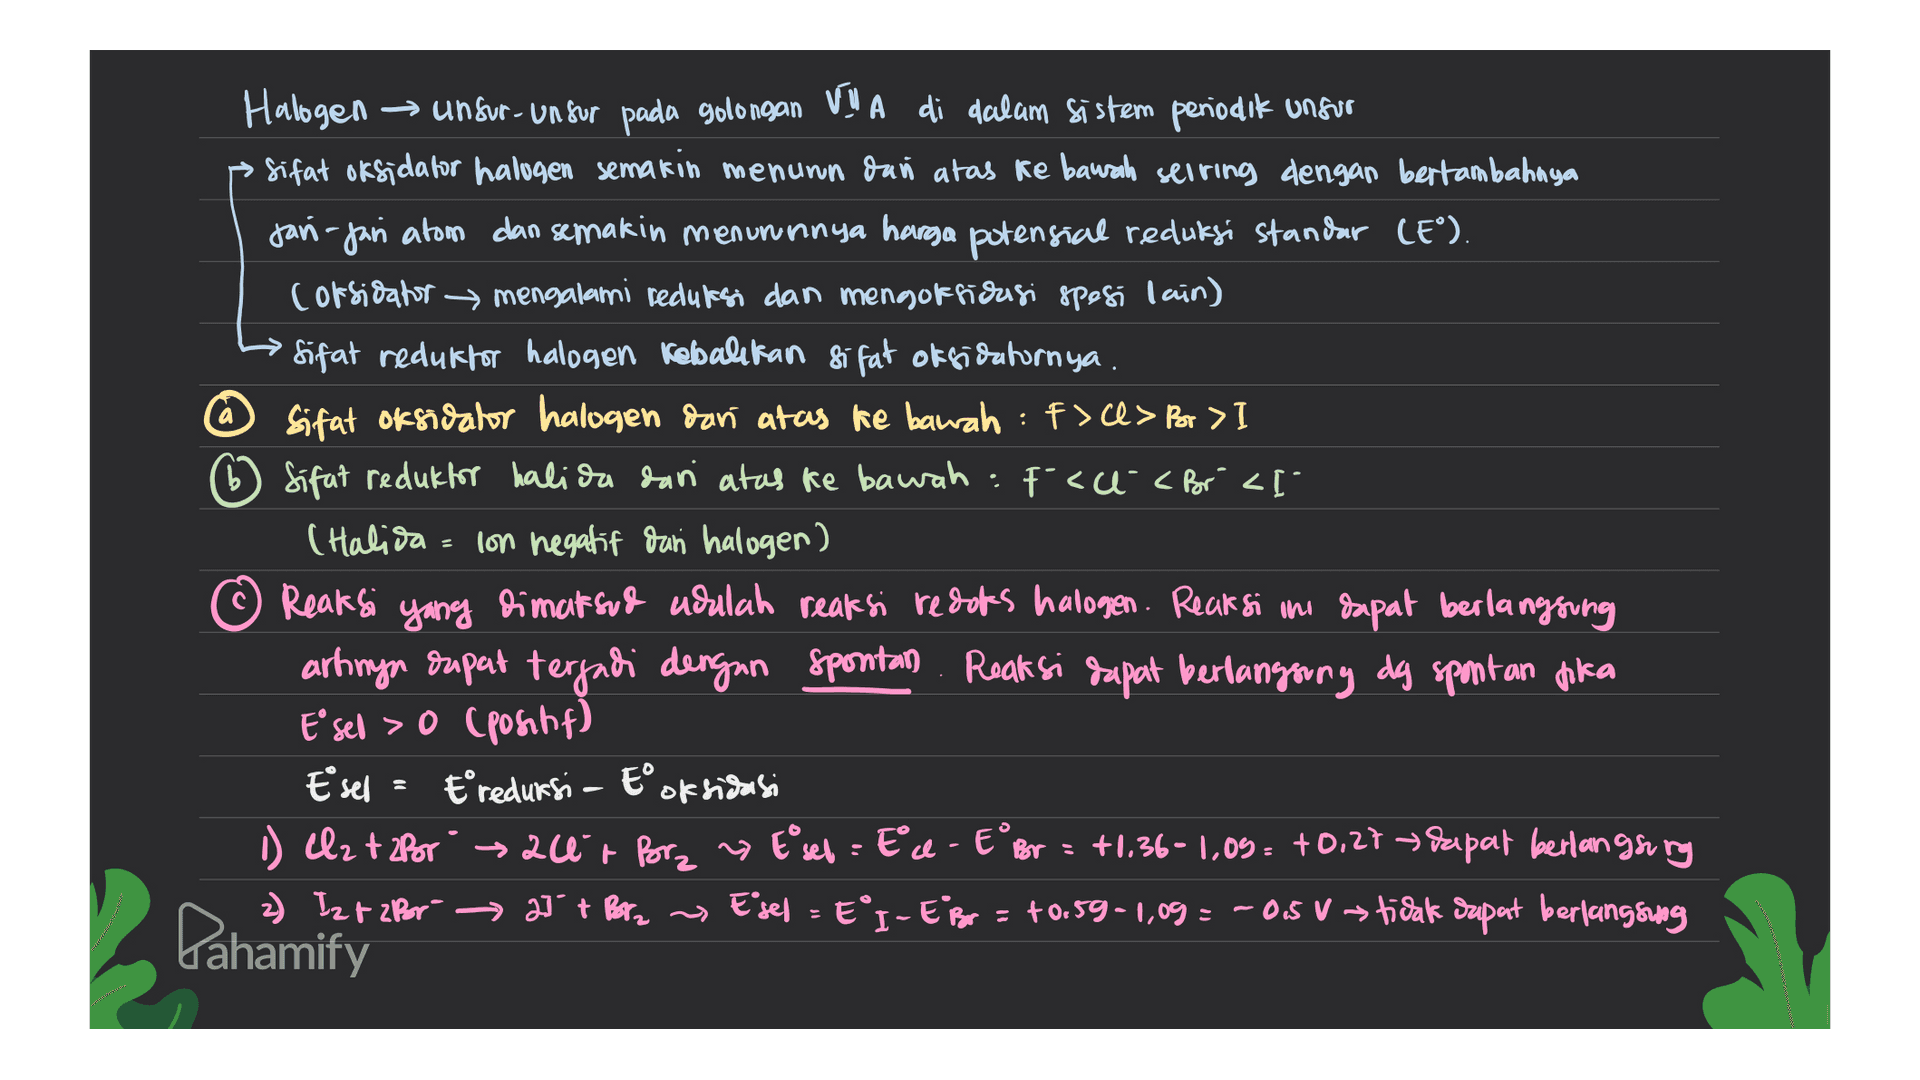 Halogen → unsur-unsur pada golongan VIIA di dalam sistem periodik unsur
→ Sifat oksidator halogen semakin menurun dari atas ke bawah seiring dengan bertambahnya
jari-jari atom dan semakin menurunnya harga potensial reduksi standar (E°).
(Oksidator → mengalami reduksi dan mengoksidasi spesi lain)
→ Sifat reduktor halogen kebalikan sifat oksidatornya.
(a) Sifat oksidator halogen dari atas ke bawah : F > Cl > Br > I
(b) Sifat reduktor halida dari atas ke bawah : F⁻ < Cl⁻ < Br⁻ < I⁻
(Halida = Ion negatif dari halogen)
(c) Reaksi yang dimaksud adalah reaksi redoks halogen. Reaksi ini dapat berlangsung
artinya dapat terjadi dengan spontan. Reaksi dapat berlangsung dg spontan jika
E°sel > 0 (positif)
E°sel = E°reduksi - E°oksidasi
1) Cl₂ + 2Br⁻ → 2Cl⁻ + Br₂ ⇝ E°sel = E°Cl - E°Br = +1.36 - 1,09 = +0,27 → dapat berlangsung
2) I₂ + 2Br⁻ → 2I⁻ + Br₂ ⇝ E°sel = E°I - E°Br = +0.59 - 1,09 = -0.5 V → tidak dapat berlangsung
Pahamify